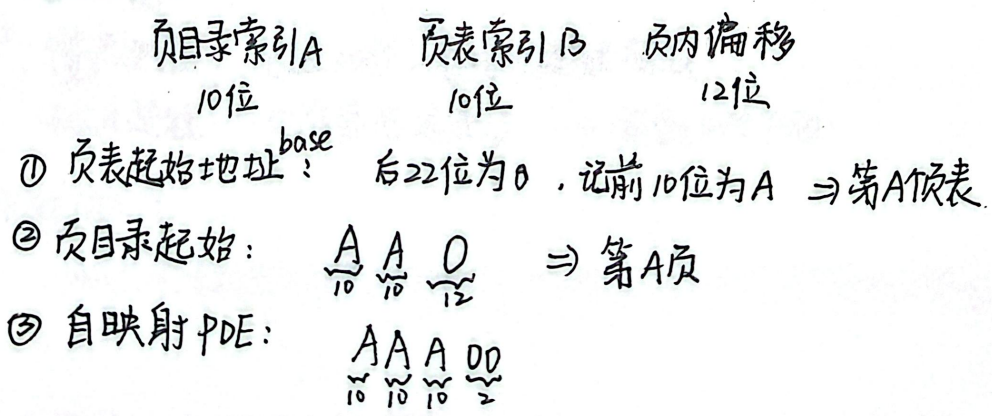 页目录索引A 页表索引B 页内偏移
10位 10位 12位
① 页表起始地址base: 后22位为0，记前10位为A ⇒第A个页表.
② 页目录起始: A A 0 ⇒ 第A页
10 10 12
③ 自映射PDE: A A A 00
10 10 10 2